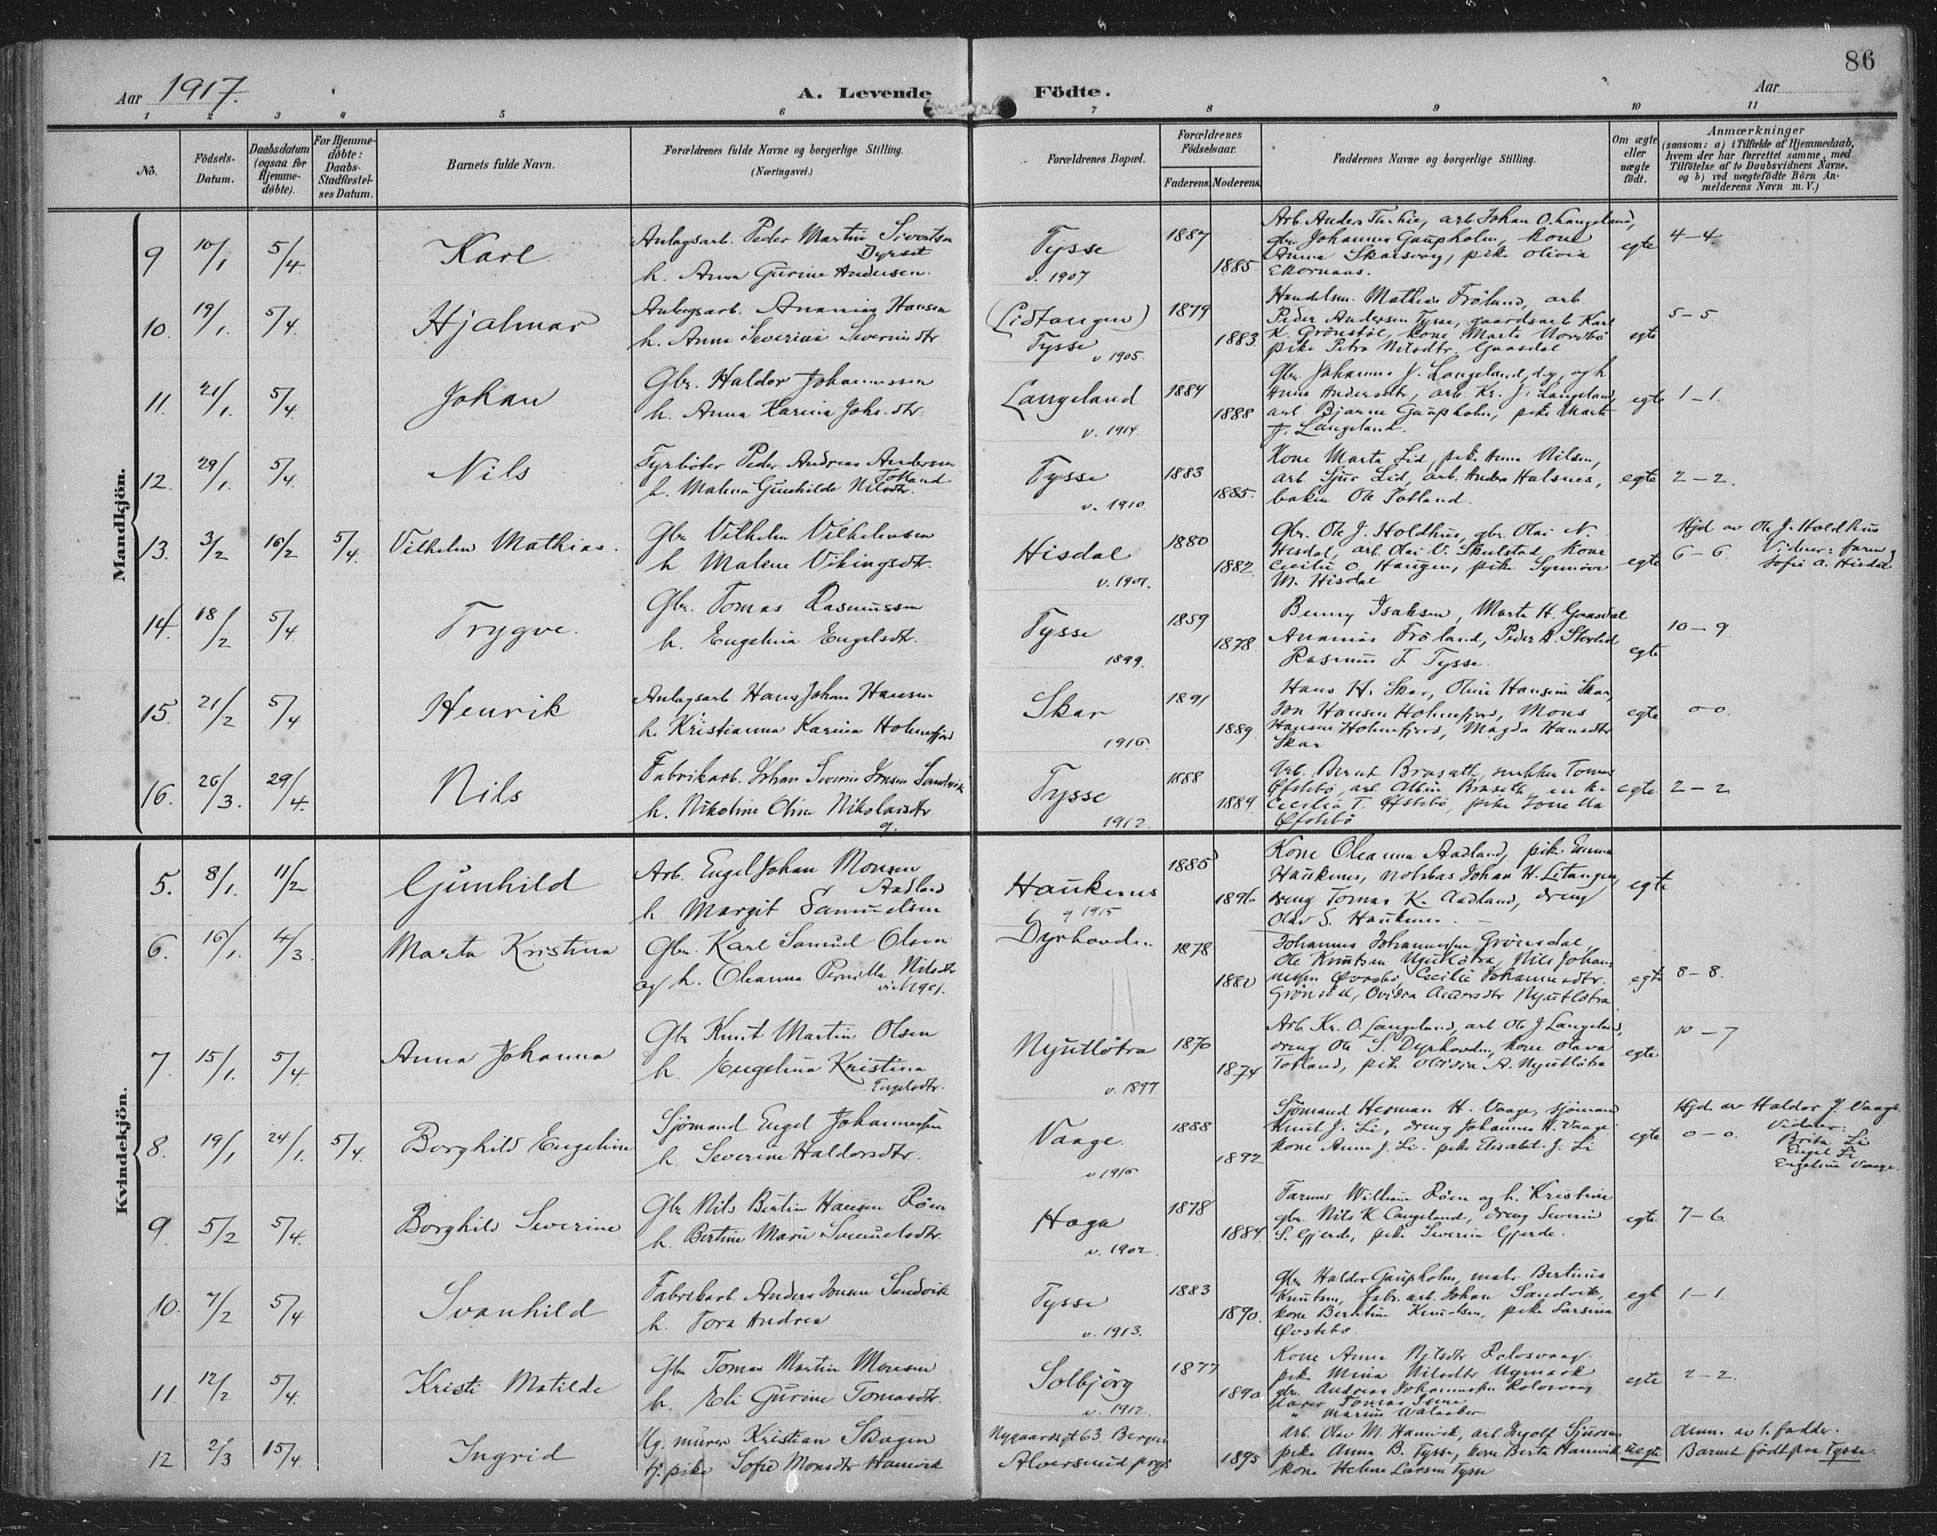 86
Aar 1917. A. Levende Födte. Aar
1 2 3 4 5 6 7 8 9 10 11
No. Födsels-Datum. Daabsdatum (ogsaa for Hjemme-döbte). For Hjemme-döbte: Daabs-Stadfæstel-ses Datum. Barnets fulde Navn. Forældrenes fulde Navne og borgerlige Stilling. (Næringsvei.) Forældrenes Bopæl. Forældrenes Födselsaar. Faderens. Moderens. Faddernes Navne og borgerlige Stilling. Om ægte eller uægte födt. Anmærkninger (saasom: a) i Tilfælde af Hjemmedaab, hvem der har forrettet samme, med Tilföielse af to Daabsvidners Navne, og b) ved uægtefödte Börn An-melderens Navn m. V.)
Mandkjön.
9 10/1 5/4. Karl Anlagsarb. Peder Martin Sivertsen Dyrset
h. Anna Gurine Andersen.
Tysse v. 1907 1887 1885
Arb. Anders, arb. Johan O. Langeland,
gbr. Johannes Gaupholm, kone
Anna Skarsvag, pike Olivia
Ekornaas.
egte 4-4
10. 19/1. 5/4. Hjalmar Anlegsarb. Ananias Hansen
h. Anna Severina Severinsdtr
(Lidtangen) Tysse v 1905. 1879 1883.
Handelsm. Mathias Fröland, arb.
Peder Andersen Tysse, gaardsarb Karl
K. Grönstöl, kone Marta
pike Petra Nilsdtr. Gaasdal
egte 5-5
11. 21/1. 5/4. Johan Gbr. Haldor Johannessen
h. Anna Karina Johs.dtr.
Langeland v. 1914. 1884 1888
Gbr. Johannes J. Langeland, d.y., og h
Anna Andersdtr, arb. Kr. J. Langeland,
arb. Bjarne Gaupholm, pike Marta
J. Langeland.
egte 1-1.
12. 29/1. 5/4. Nils Fyrböter Peder Andreas Andersen Totland
h. Malena Gunhilde Nilsdtr.
Tysse v. 1910. 1883 1885.
Kone Marta Lid, pike Anna Nilsen,
arb Sjur Lid, arb. Anders Halsnes,
baker Ole Totland.
egte 2-2.
13. 3/2 16/2 5/4. Vilhelm Mathias. Gbr Vilhelm Vilhelmsen
h. Malene Vikingsdtr.
Hisdal v. 1901. 1880 1882.
gbr. Ole J. Holdhus, gbr. Olai N.
Hisdal, arb. Olai V. Skulstad, kone
Cecilie O. Haugen, pike Synnöve
M. Hisdal
egte 6-6. Hjd av Ole J. Holdhus
Vidner: faren
Sofie A. Hisdal
14. 18/2 5/4 Trygve. Gbr. Tomas Rasmussen
h. Engelina Engelsdtr.
Tysse 1899. 1859 1878
Benny Isaksen, Marta H. Gaasdal
Ananias Fröland, Peder A. Storlid
Rasmus T. Tysse.
egte 10-9.
15. 21/2 5/4 Henrik Anlagsarb Hans Johan Hansen
h. Kristianna Karina Holmefjord
Skar 1916. 1891 1889.
Hans H. Skar, Oline Hansine Skar,
Jon Hansen Holmefjord, Mons
Hansen Holmefjord, Magda Hansdtr
Skar
egte 0-0.
16. 26/3. 29/4. Nils Fabrikarb. Johan Severin Jonsen Sandvik
h. Nikoline Oline Nikolaisdtr
g.
Tysse 1912. 1888 1889
Arb. Bernt Braseth, snekker Tomas
Öfstebö, arb. Albin Braseth, enke
Cecilia T. Öfstebö, pike
Öfstebö
egte 2-2
Kvindekjön.
5. 8/1. 11/2 Gunhild Arb. Engel Johan Monsen Aadland
h Margit Samuelsen
Haukenes g 1915 1885 1896
Kone Oleanna Aadland, pike Emma
Haukenes, notebas Johan H. Litangen,
dreng Tomas K. Aadland, dreng
Olav S. Haukenes. -
egte
6. 16/1. 4/3. Marta Kristina Gbr. Karl Samuel Olsen
og h. Oleanna Pernilla Nilsdtr
viet 1901.
Dyrhovden 1878 1880
Johannes Johannessen Grönsdal,
Ole Knutsen Njutlötra, Nils Johan-
nessen Övrebö, Cecilie Johannesdtr.
Grönsdal, Njutlötra
egte 8-8.
7. 15/1. 5/4. Anna Johanna Gbr Knut Martin Olsen
h. Engelina Kristina
Engelsdtr.
Njutlötra v. 1897. 1870 1874
Arb. Kr. O. Langeland, arb Ole J. Langeland,
dreng Ole S. Dyrhovden, kone Olava
Totland, pike A. Njutlötra
egte 10-7
8. 19/1 24/1. 5/4. Borghild Engeline Sjömand Engel Johannessen
h. Severine Haldorsdtr.
Vaage. v 1916 1888 1892
Sjömand Herman H. Vaage, sjömand
Knut J. Li, dreng Johannes H. Vaage
kone Anna J. Li. pike Elisabet J. Li
egte 0-0. Hjd av Haldor J. Vaage.
Vidner:
Brita Li
Engel Li
Engelina Vaage.
9. 5/2 5/4. Borghild Severine Gbr Nils Bertin Hansen Röen
h. Bertine Marie Samuelsdtr.
Haga v. 1902. 1878 1884.
Farmer William Röen og h. Kristine
gbr. Nils K Langeland, dreng Severin
S. Gjerde, pike Severine Gjerde.
egte 7-6.
10. 7/2 5/4 Svanhild Fabrikarb. Anders Jonsen Sandvik
h. Tora Andrea
Tysse v. 1913. 1883 1890.
gbr Haldor Gaupholm, maler Bertinus
Knutsen, fabr. arb. Johan Sandvik,
kone Berthine Knudsen, pike Larsina
Övstebö.
egte 1-1.
11. 12/2 5/4 Kristi Matilde Gbr Tomas Martin Monsen
h. Eli Gurine Tomasdtr.
Solbjörg v. 1912. 1877 1890.
Kone Anna Nilsdtr Rolvsvaag.
pike Mina Nilsdtr
gbr. Andreas Johannessen Rolvsvaag
Tomas
" Marius
egte 2-2.
12 2/3 15/4 Ingrid Ug. murer Kristian Skogen
tj. pike Sofie Monsdtr Hamrik
Nygaardsgt 63. Bergen
Alversund prgj. 1895
Arb. Olav M. Hamrik, arb. Ingolf Sjursen
pike Anna B. Tysse, kone Berta Hamrik
kone Helene Larsen Tysse
uegte Anm. av 1. fadder.
Barnet födt paa Tysse.